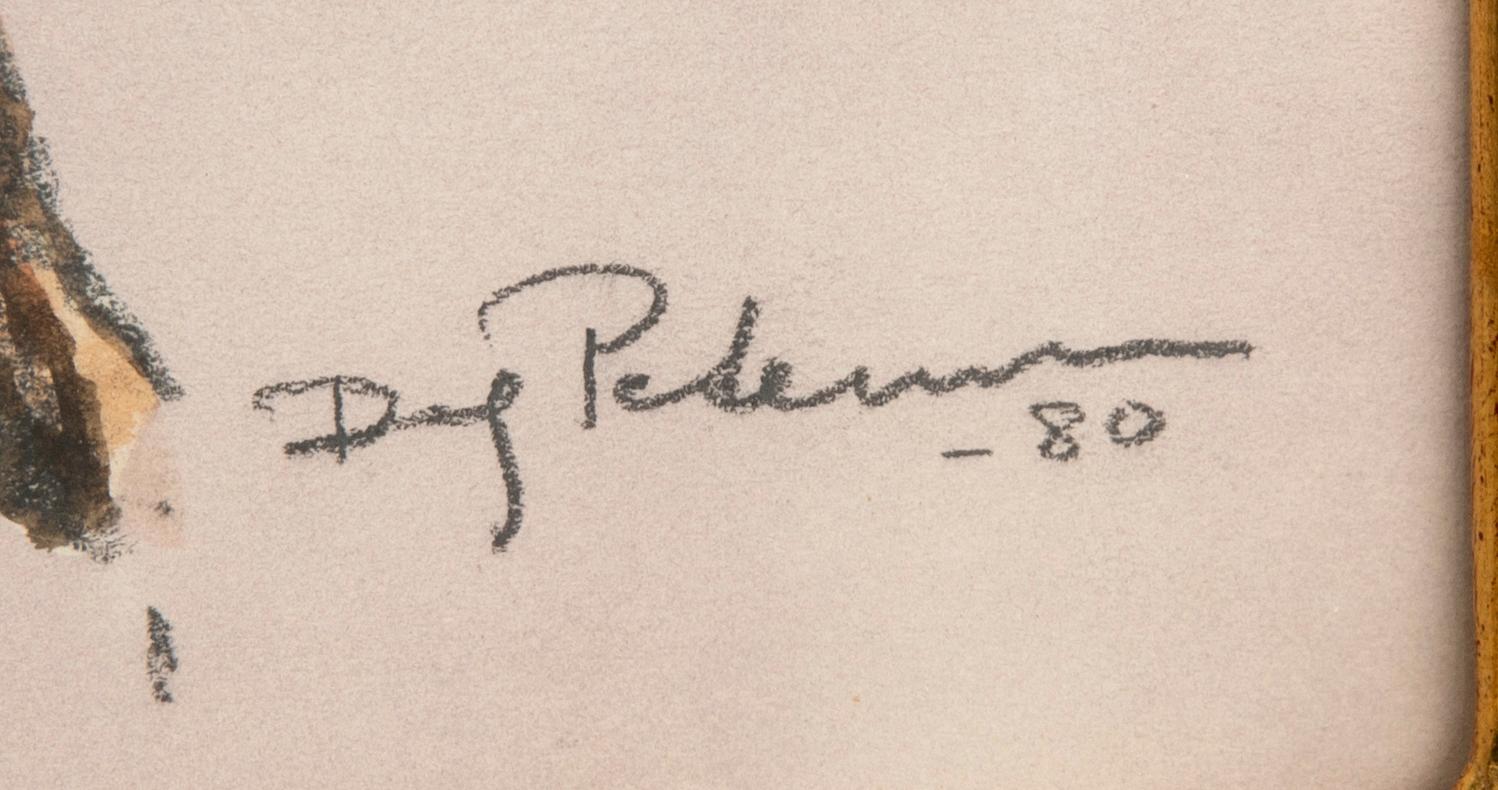 Dag Peterson
- 80